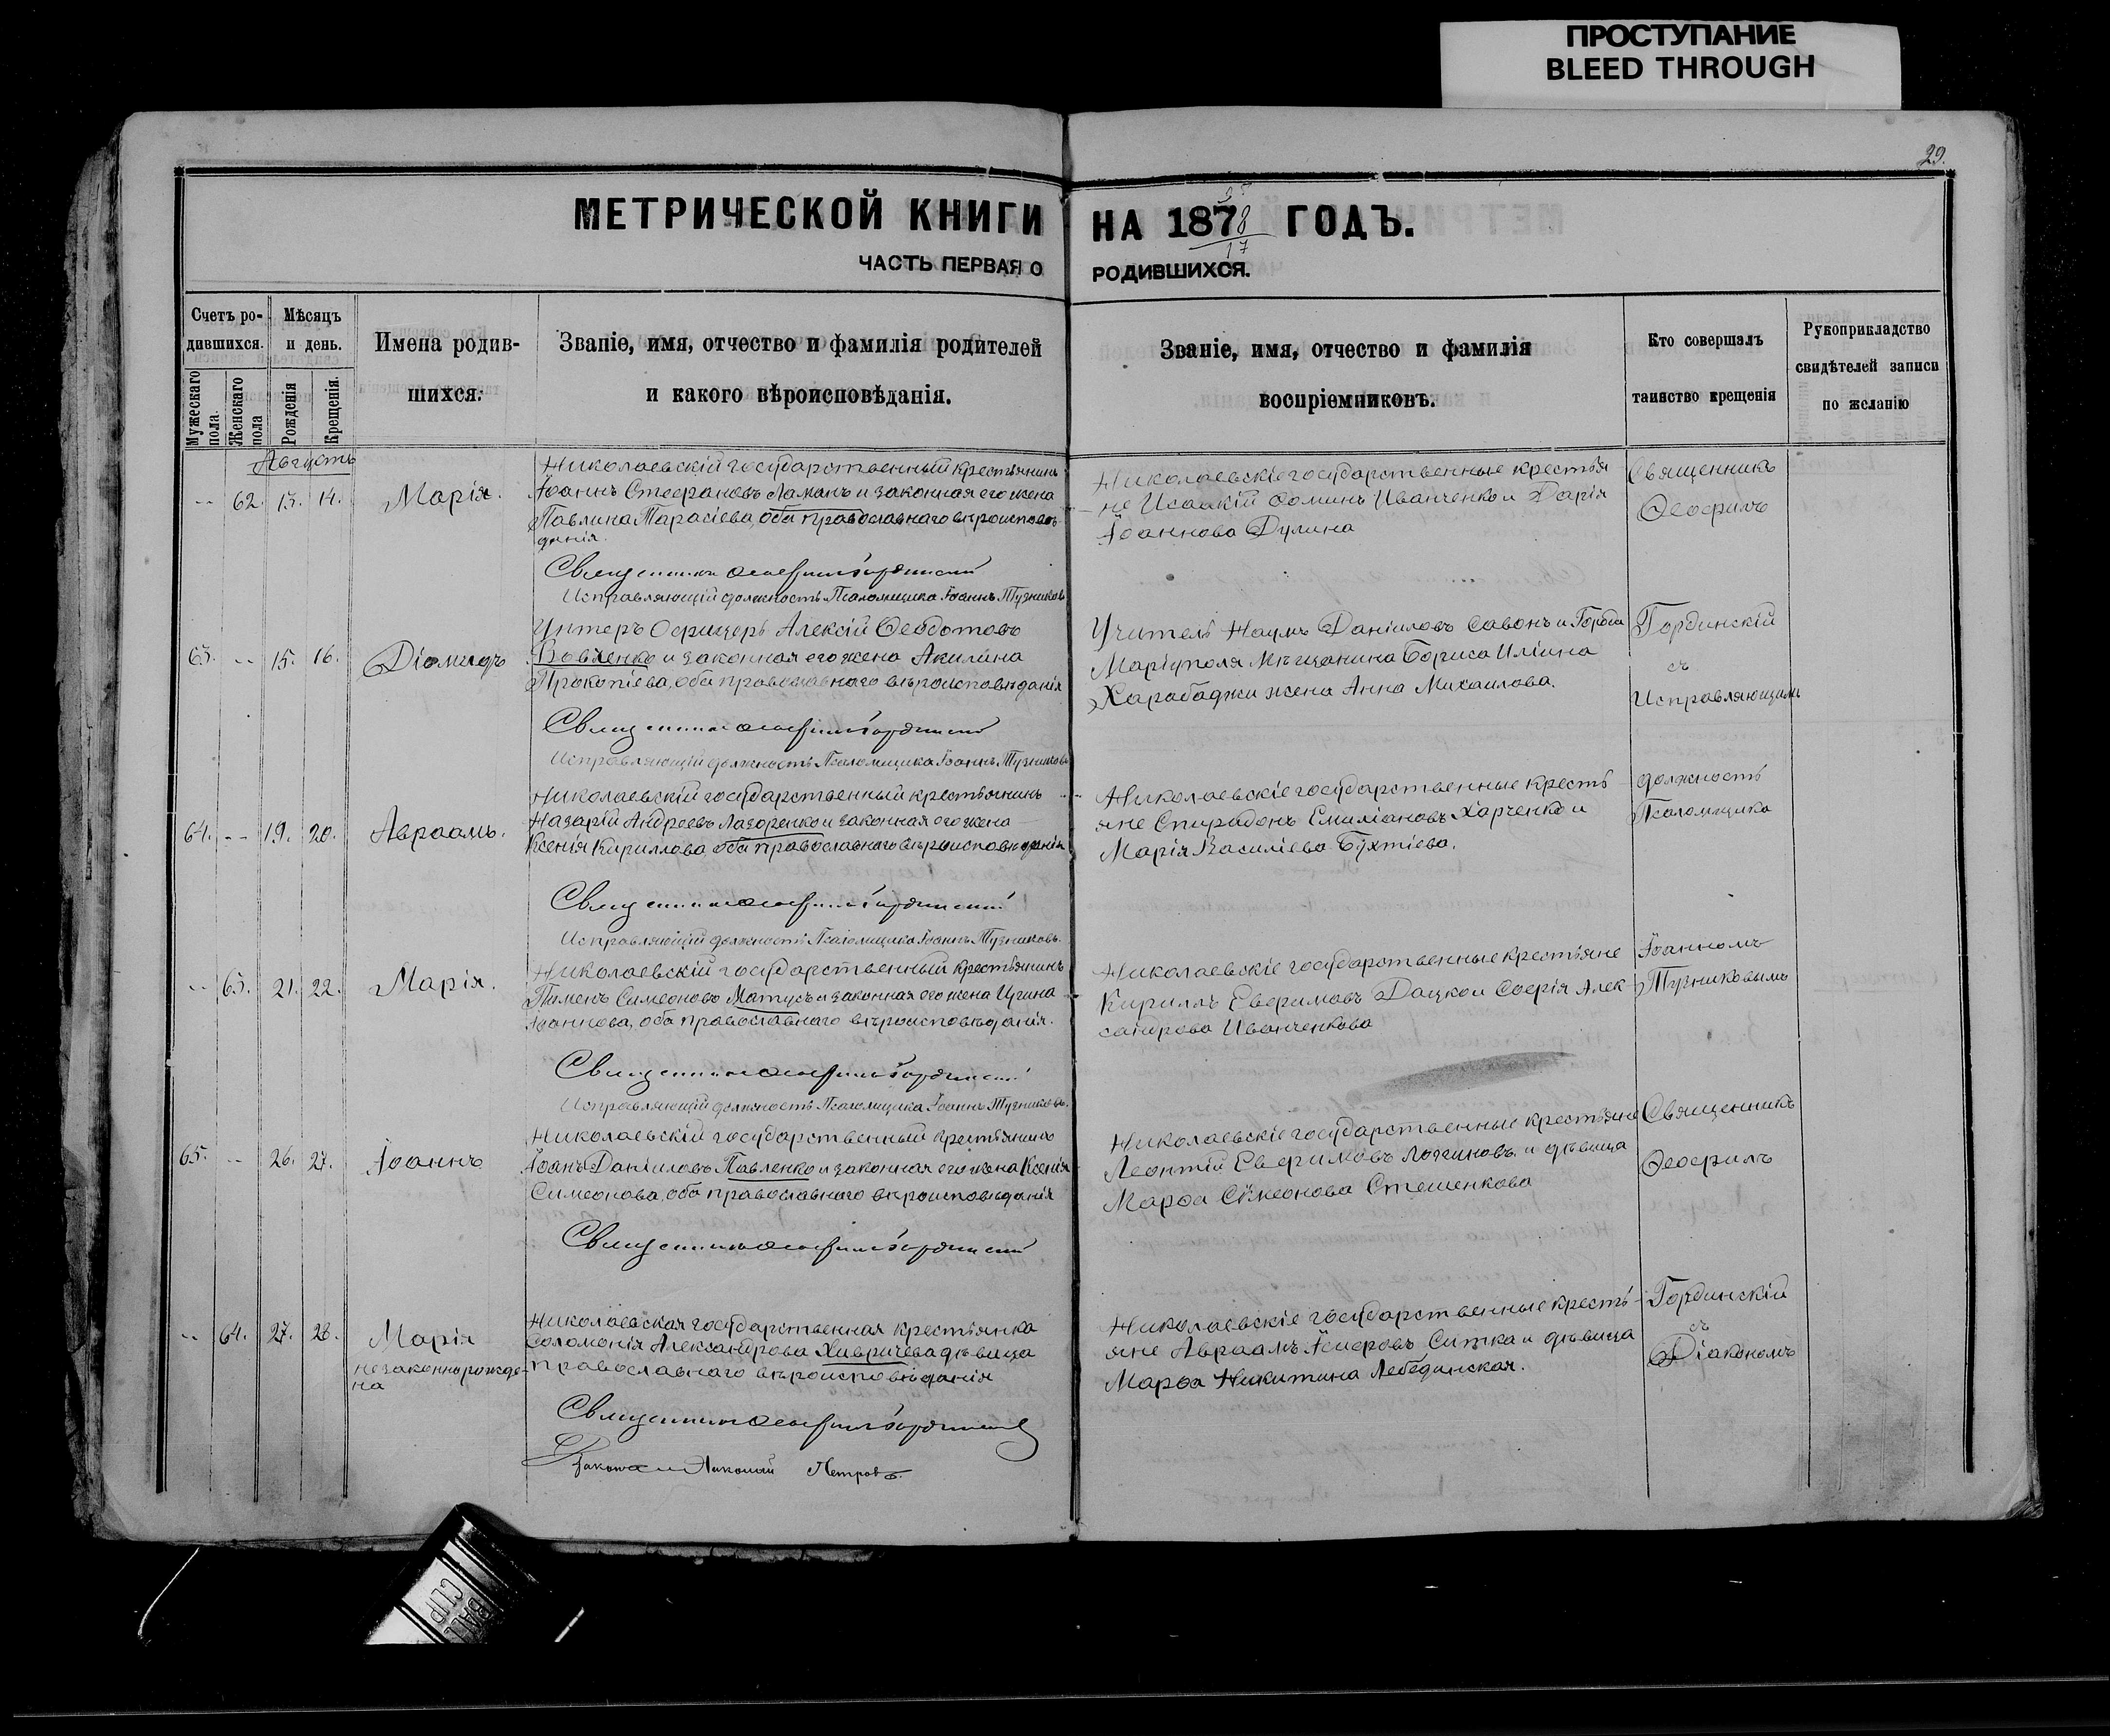 ПРОСТУПАНИЕ
BLEED THROUGH
29.
МЕТРИЧЕСКОЙ КНИГИ НА 1878 ГОДЪ.
17
ЧАСТЬ ПЕРВАЯ О РОДИВШИХСЯ.
Счетъ ро-
дившихся.
Мужескаго пола.
Женскаго пола
Мѣсяцъ
и день.
Рожденія
Крещенія.
Имена родив-
шихся.
Званіе, имя, отчество и фамилія родителей
и какого вѣроисповѣданія.
Званіе, имя, отчество и фамилія
воспріемниковъ.
Кто совершалъ
таинство крещенія
Рукоприкладство
свидѣтелей записи
по желанію
Августъ
-- 62. 13. 14. Марія.
Николаевскій государственный крестьянинъ
Іоаннъ Стефановъ Ломанъ и законная его жена
Павлина Тарасіева, оба православнаго вѣроисповѣ-
данія.
Николаевскіе государственные крестья-
не Исаакій Ѳоминъ Иванченко и Дарія
Іоаннова Дулина
Священникъ
Ѳеофилъ
Священникъ Ѳеофилъ Гординскій
Исправляющій должность Псаломщика Іоаннъ Тузниковъ
63. -- 15. 16. Діомидъ
Унтеръ Офицеръ Алексій Ѳеодотовъ
Вовченко и законная его жена Акилина
Прокопіева, оба православнаго вѣроисповѣданія
Учитель Наумъ Даніиловъ Савонъ и Города
Маріуполя Мѣщанина Бориса Иліина
Харабаджи жена Анна Михаилова.
Гординскій
съ
Исправляющимъ
Священникъ Ѳеофилъ Гординскій
Исправляющій должность Псаломщика Іоаннъ Тузниковъ
64. -- 19. 20. Авраамъ.
Николаевскій государственный крестьянинъ
Назарій Андреевъ Лазоренко и законная его жена
Ксенія Кириллова, оба православнаго вѣроисповѣданія
Николаевскіе государственные кресть-
яне Спиридонъ Емиліановъ Харченко и
Марія Василіева Бухтіева.
должность
Псаломщика
Священникъ Ѳеофилъ Гординскій
Исправляющій должность Псаломщика Іоаннъ Тузниковъ.
-- 63. 21. 22. Марія.
Николаевскій государственный крестьянинъ
Пименъ Симеоновъ Матусъ и законная его жена Ирина
Іоаннова, оба православнаго вѣроисповѣданія.
Николаевскіе государственные крестьяне
Кириллъ Евфимовъ Дацко и Софія Алек-
сандрова Иванченкова
Іоанномъ
Тузниковымъ
Священникъ Ѳеофилъ Гординскій
Исправляющій должность Псаломщика Іоаннъ Тузниковъ.
65. -- 26. 27. Іоаннъ
Николаевскій государственный крестьянинъ
Іоаннъ Даніиловъ Павленко и законная его жена Ксенія
Симеонова, оба православнаго вѣроисповѣданія
Николаевскіе государственные крестьяне
Леонтій Евфимовъ Логвиновъ и дѣвица
Марѳа Симеонова Стешенкова
Священникъ
Ѳеофилъ
Священникъ Ѳеофилъ Гординскій
-- 64. 27. 28. Марія
незаконнорожде-
на
Николаевская государственная крестьянка
Соломонія Александрова Хивричева дѣвица
православнаго вѣроисповѣданія
Николаевскіе государственные кресть-
яне Авраамъ Ситка и дѣвица
Марѳа Никитина Лебединская.
Гординскій
съ
Діакономъ
Священникъ Ѳеофилъ Гординскій
Діаконъ Николай Петровъ.
BALL
CLIP